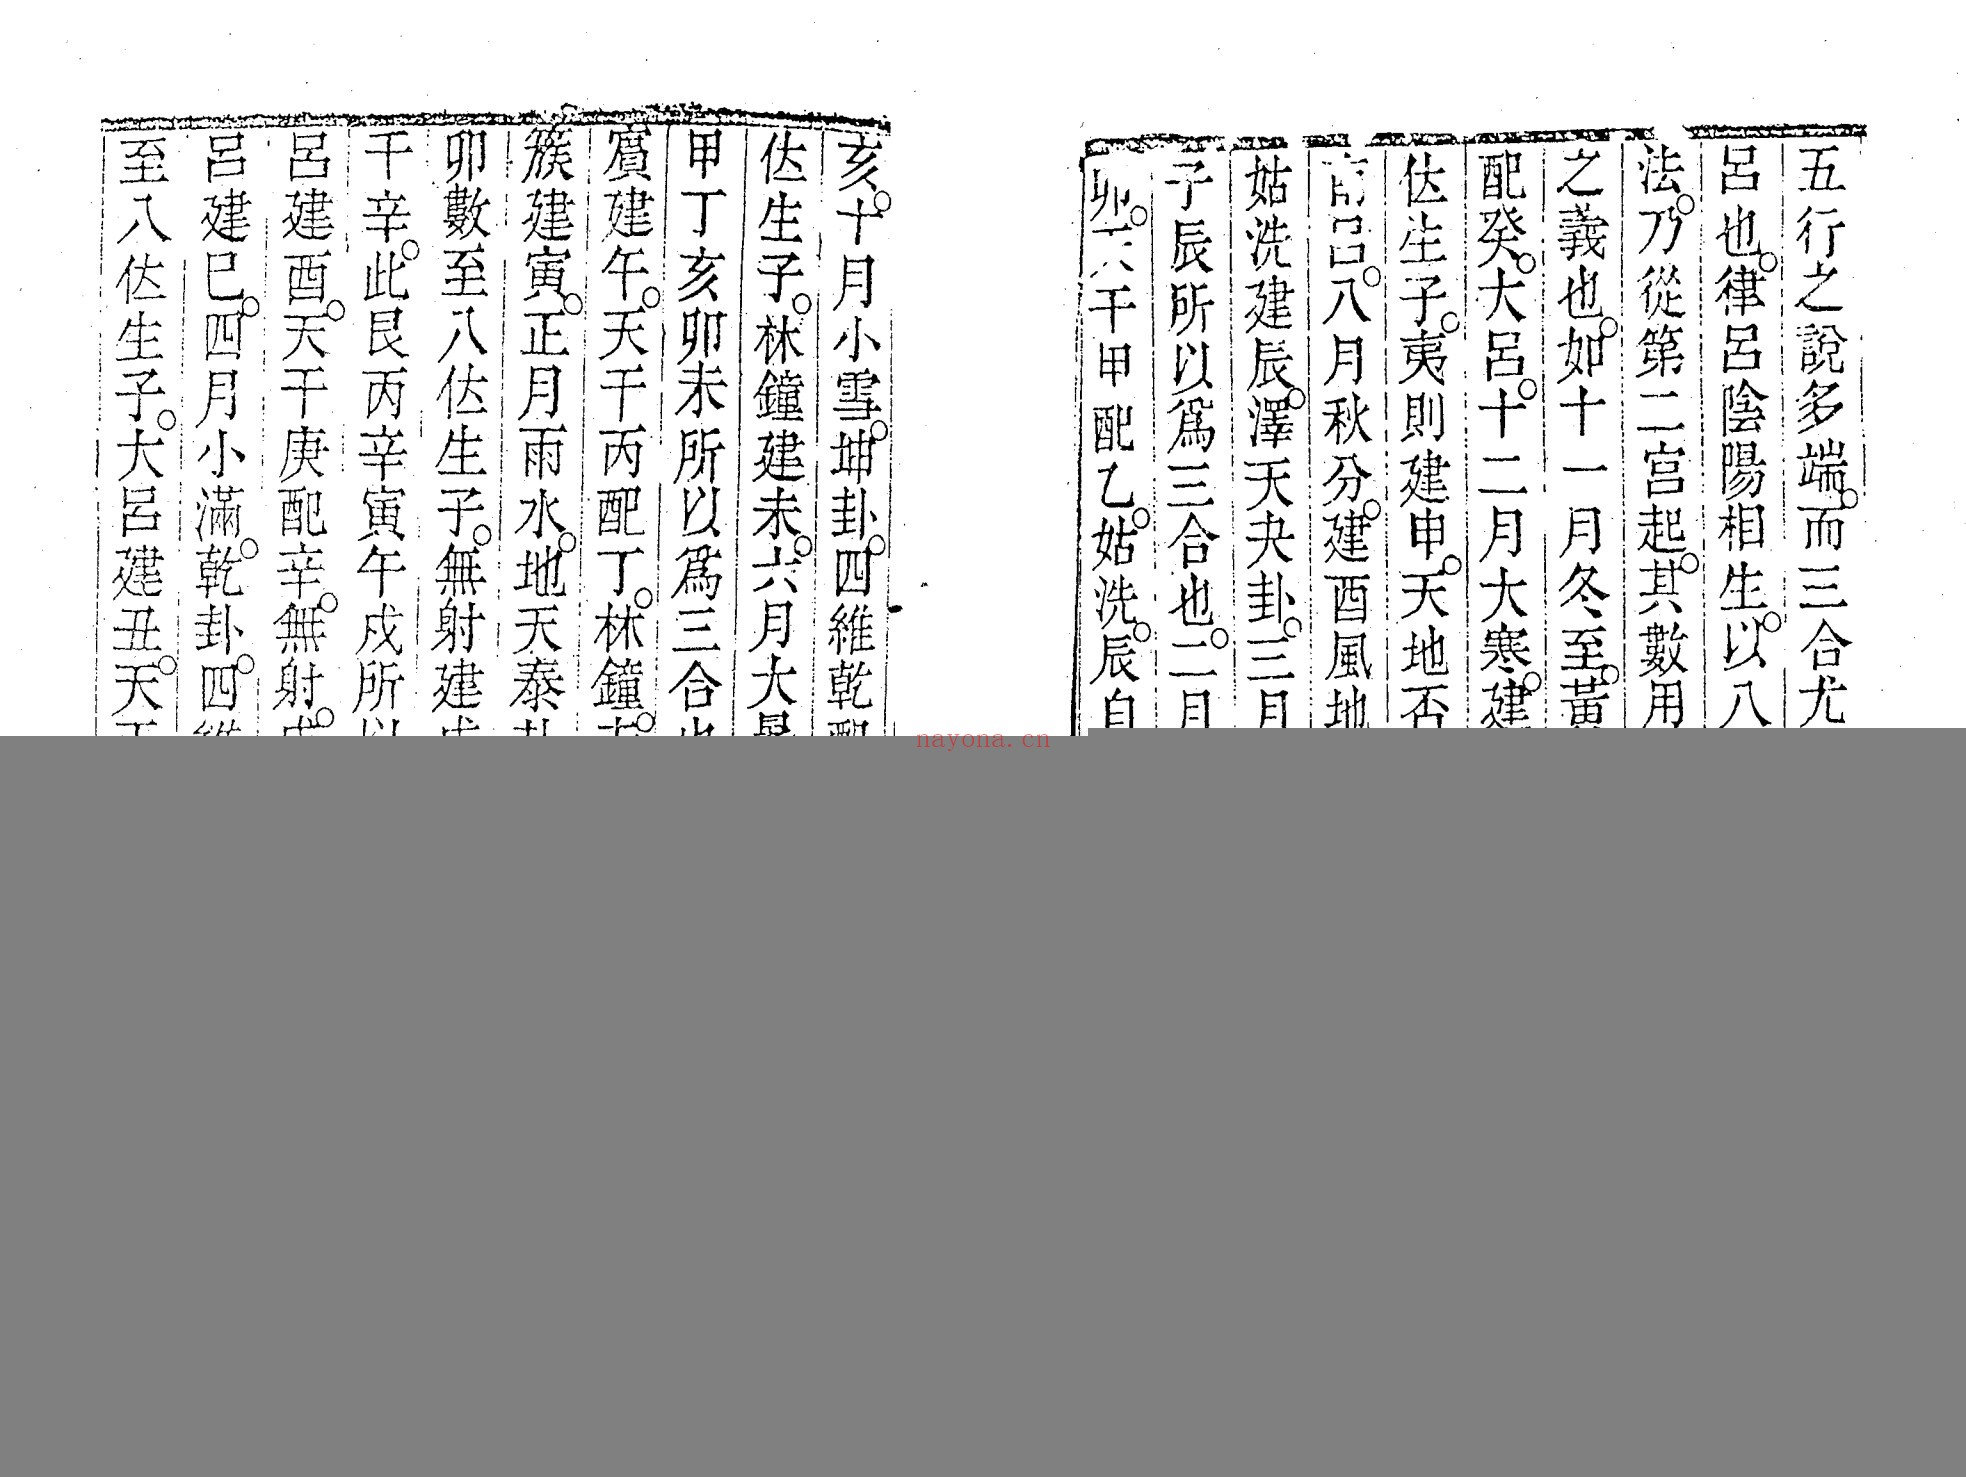 五行之說多端。而三合尤
呂也。律呂陰陽相生。以八
法。乃從第二宮起。其數用
之義也。如十一月冬至。黃
配癸。大呂。十二月大寒。建
佐生子。夷則建申。天地否
呂。八月秋分。建酉風地
姑洗建辰。澤天夬卦。三月
子辰所以爲三合也。二月
卯。天干甲配乙。姑洗。辰自
亥。十月小雪。坤卦。四維乾配
佐生子。林鐘建未。六月大暑
甲丁亥卯未所以爲三合也
賓建午。天干丙配丁。林鐘。
簇建寅。正月雨水。地天泰卦
卯數至八佐生子。無射建戌
干辛。此艮丙辛寅午戌所以
呂建酉。天干庚配辛。無射。戌
呂建巳。四月小滿。乾卦。四維
至八佐生子。大呂建丑。天
nayona.cn